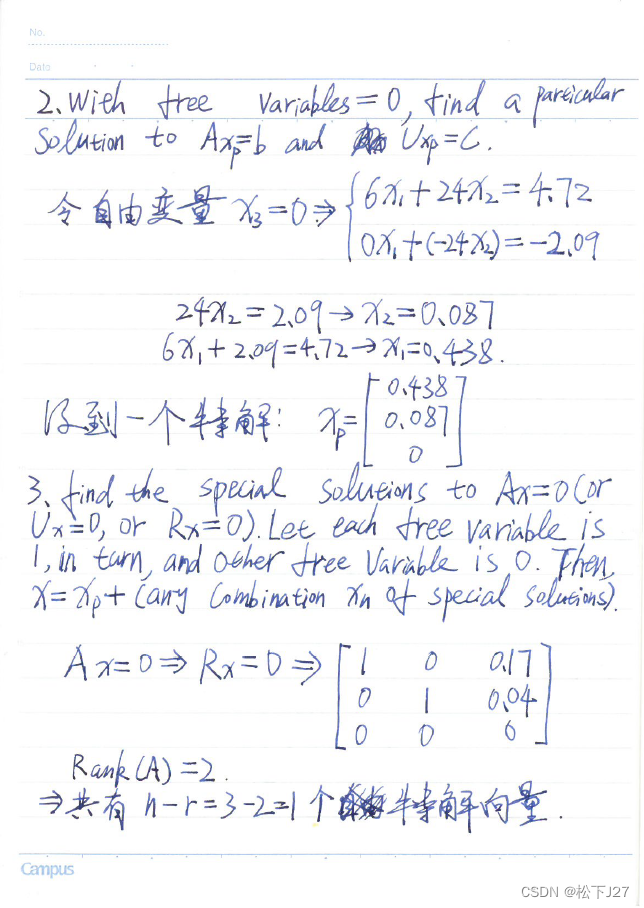 No.
Date
2. With free variables=0, find a particular
solution to Axp=b and Uxp=C.
令自由变量 x3=0⇒ { 6x1+24x2=4.72
0x1+(-24x2)=-2.09
24x2=2.09→x2=0.087
6x1+2.09=4.72→x1=0.438.
得到一个特解: xp= [0.438
0.087
0]
3. find the special solutions to Ax=0(or
Ux=0, or Rx=0). Let each free variable is
1, in turn, and other free variable is 0. Then,
x=xp+(any combination xn of special solutions).
Ax=0⇒Rx=0⇒ [1 0 0.17
0 1 0.04
0 0 0]
Rank(A)=2.
⇒共有 n-r=3-2=1个特解向量.
Campus
CSDN @松下J27